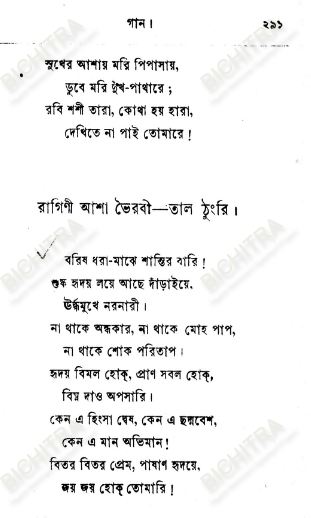 গান।
২৯১
সুখের আশায় মরি পিপাসায়,
ডুবে মরি দুখ-পাথারে;
রবি শশী তারা, কোথা হয় হারা,
দেখিতে না পাই তোমারে!
রাগিণী আশা ভৈরবী—তাল ঠুংরি।
বরিষ ধরা-মাঝে শান্তির বারি!
শুষ্ক হৃদয় লয়ে আছে দাঁড়াইয়ে,
ঊর্দ্ধমুখে নরনারী।
না থাকে অন্ধকার, না থাকে মোহ পাপ,
না থাকে শোক পরিতাপ।
হৃদয় বিমল হোক্, প্রাণ সবল হোক্,
বিঘ্ন দাও অপসারি।
কেন এ হিংসা দ্বেষ, কেন এ ছদ্মবেশ,
কেন এ মান অভিমান!
বিতর বিতর প্রেম, পাষাণ হৃদয়ে,
জয় জয় হোক্ তোমারি!
BICHITRA
BICHITRA
BICHITRA
BICHITRA
BICHITRA
BICHITRA